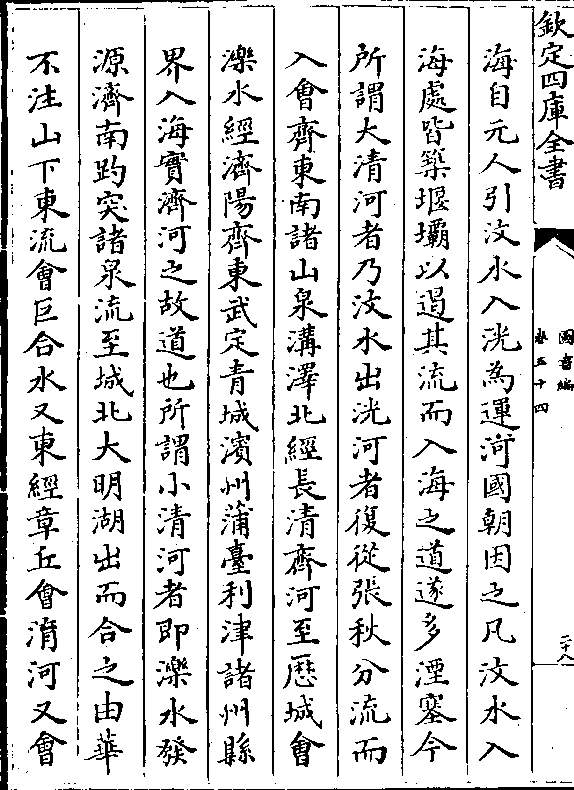 欽定四庫全書
圖書編
卷五十四
二十八
海自元人引汶水入洸為運河國朝因之凡汶水入
海處皆築堰壩以遏其流而入海之道遂多湮塞今
所謂大清河者乃汶水出洸河者復從張秋分流而
入會齊東南諸山泉溝澤北經長清齊河至歴城會
濼水經濟陽齊東武定青城濱州蒲臺利津諸州縣
界入海實濟河之故道也所謂小清河者即濼水發
源濟南趵突諸泉流至城北大明湖出而合之由華
不注山下東流會巨合水又東經章丘會淯河又會